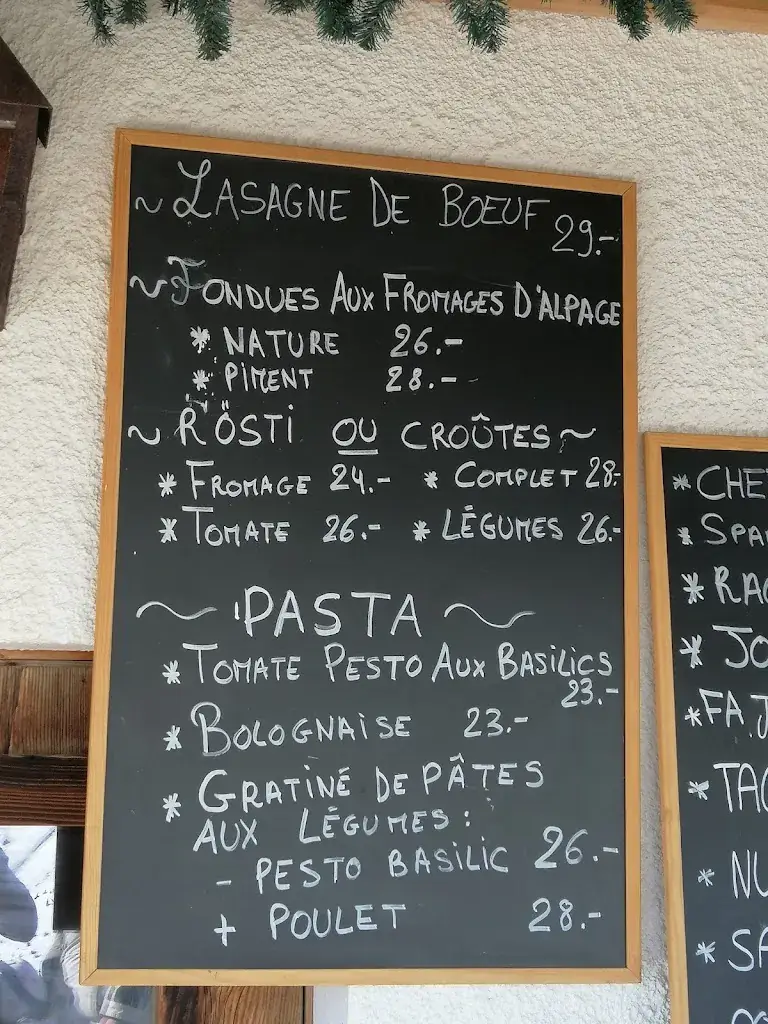 ~ LASAGNE DE BOEUF 29.-
~ FONDUES AUX FROMAGES D'ALPAGE
* NATURE 26.-
* PIMENT 28.-
~ RÖSTI OU CROÛTES ~
* FROMAGE 24.- * COMPLET 28.-
* TOMATE 26.- * LÉGUMES 26.-
~ PASTA ~
* TOMATE PESTO AUX BASILICS
23.-
* BOLOGNAISE 23.-
* GRATINÉ DE PÂTES
AUX LÉGUMES :
- PESTO BASILIC 26.-
+ POULET 28.-